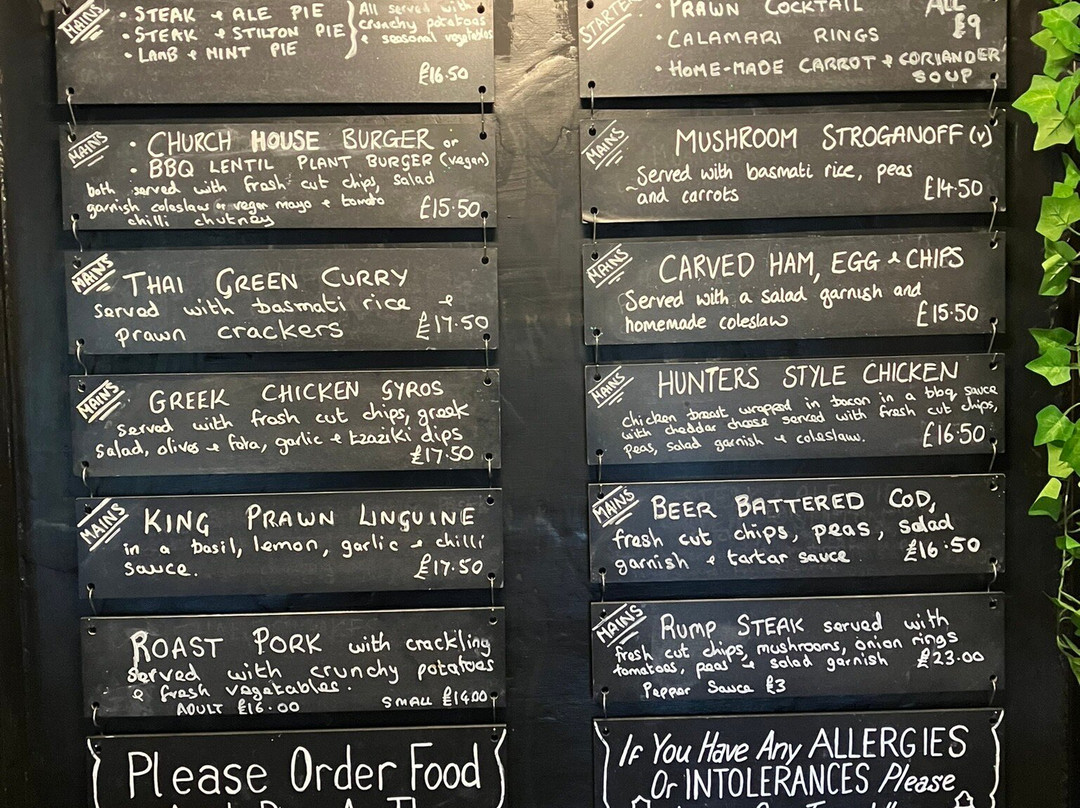 MAINS
• STEAK & ALE PIE
• STEAK & STILTON PIE
• LAMB & MINT PIE
All served with
crunchy potatoes
& seasonal vegetables
£16.50
MAINS
• CHURCH HOUSE BURGER or
• BBQ LENTIL PLANT BURGER (vegan)
both served with fresh cut chips, salad
garnish coleslaw or vegan mayo & tomato
chilli chutney
£15.50
MAINS
THAI GREEN CURRY
served with basmati rice &
prawn crackers £17.50
MAINS
GREEK CHICKEN GYROS
served with fresh cut chips, greek
salad, olives & feta, garlic & tzaziki dips
£17.50
MAINS
KING PRAWN LINGUINE
in a basil, lemon, garlic & chilli
sauce. £17.50
ROAST PORK with crackling
served with crunchy potatoes
& fresh vegetables.
ADULT £16.00 SMALL £14.00
Please Order Food
STARTERS
• PRAWN COCKTAIL
• CALAMARI RINGS
• HOME-MADE CARROT & CORIANDER
SOUP
ALL
£9
MAINS
MUSHROOM STROGANOFF (v)
Served with basmati rice, peas
and carrots £14.50
MAINS
CARVED HAM, EGG & CHIPS
Served with a salad garnish and
homemade coleslaw £15.50
MAINS
HUNTERS STYLE CHICKEN
chicken breast wrapped in bacon in a bbq sauce
with cheddar cheese served with fresh cut chips,
peas, salad garnish & coleslaw. £16.50
MAINS
BEER BATTERED COD,
fresh cut chips, peas, salad
garnish & tartar sauce £16.50
MAINS
RUMP STEAK served with
fresh cut chips, mushrooms, onion rings
tomatoes, peas & salad garnish £23.00
Pepper Sauce £3
If You Have Any ALLERGIES
Or INTOLERANCES Please